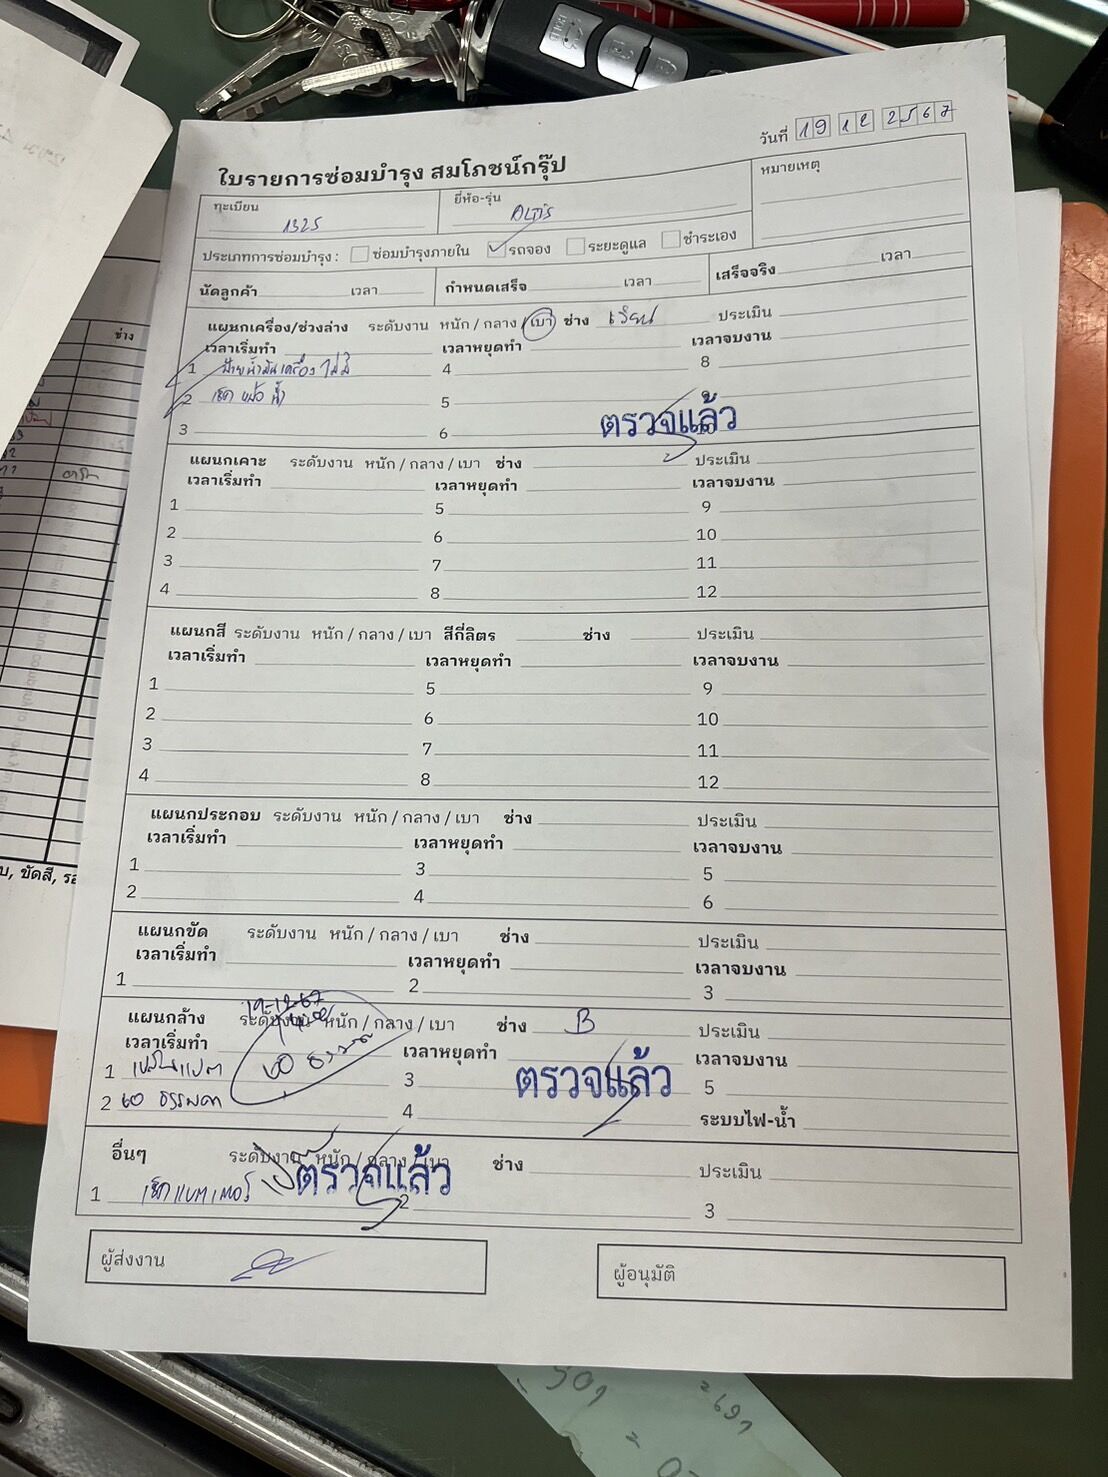 วันที่ 19 12 2567
ใบรายการซ่อมบำรุง สมโภชน์กรุ๊ป
ทะเบียน 1325 ยี่ห้อ-รุ่น ALTIS หมายเหตุ
ประเภทการซ่อมบำรุง : ซ่อมบำรุงภายใน รถจอง ระยะดูแล ชำระเอง
นัดลูกค้า เวลา กำหนดเสร็จ เวลา เสร็จจริง เวลา
แผนกเครื่อง/ช่วงล่าง ระดับงาน หนัก / กลาง / เบา ช่าง ประเมิน
เวลาเริ่มทำ เวลาหยุดทำ เวลาจบงาน
1 4 8
2 เช็ค หม้อ น้ำ 5 9
3 6
ตรวจแล้ว
แผนกเคาะ ระดับงาน หนัก / กลาง / เบา ช่าง ประเมิน
เวลาเริ่มทำ เวลาหยุดทำ เวลาจบงาน
1 5 9
2 6 10
3 7 11
4 8 12
แผนกสี ระดับงาน หนัก / กลาง / เบา สีกี่ลิตร ช่าง ประเมิน
เวลาเริ่มทำ เวลาหยุดทำ เวลาจบงาน
1 5 9
2 6 10
3 7 11
4 8 12
แผนกประกอบ ระดับงาน หนัก / กลาง / เบา ช่าง ประเมิน
เวลาเริ่มทำ เวลาหยุดทำ เวลาจบงาน
1 3 5
2 4 6
แผนกขัด ระดับงาน หนัก / กลาง / เบา ช่าง ประเมิน
เวลาเริ่มทำ เวลาหยุดทำ เวลาจบงาน
1 2 3
19-12-67
แผนกล้าง ระดับงาน หนัก / กลาง / เบา ช่าง B ประเมิน
เวลาเริ่มทำ เวลาหยุดทำ เวลาจบงาน
1 3 ตรวจแล้ว 5
2 ธรรมดา 4 ระบบไฟ-น้ำ
อื่นๆ ระดับงาน หนัก / กลาง / เบา ช่าง ประเมิน
1 เช็คแบตเตอรี่ ตรวจแล้ว 2 3
ผู้ส่งงาน ผู้อนุมัติ
ช่าง
บ, ขัดสี, รอ